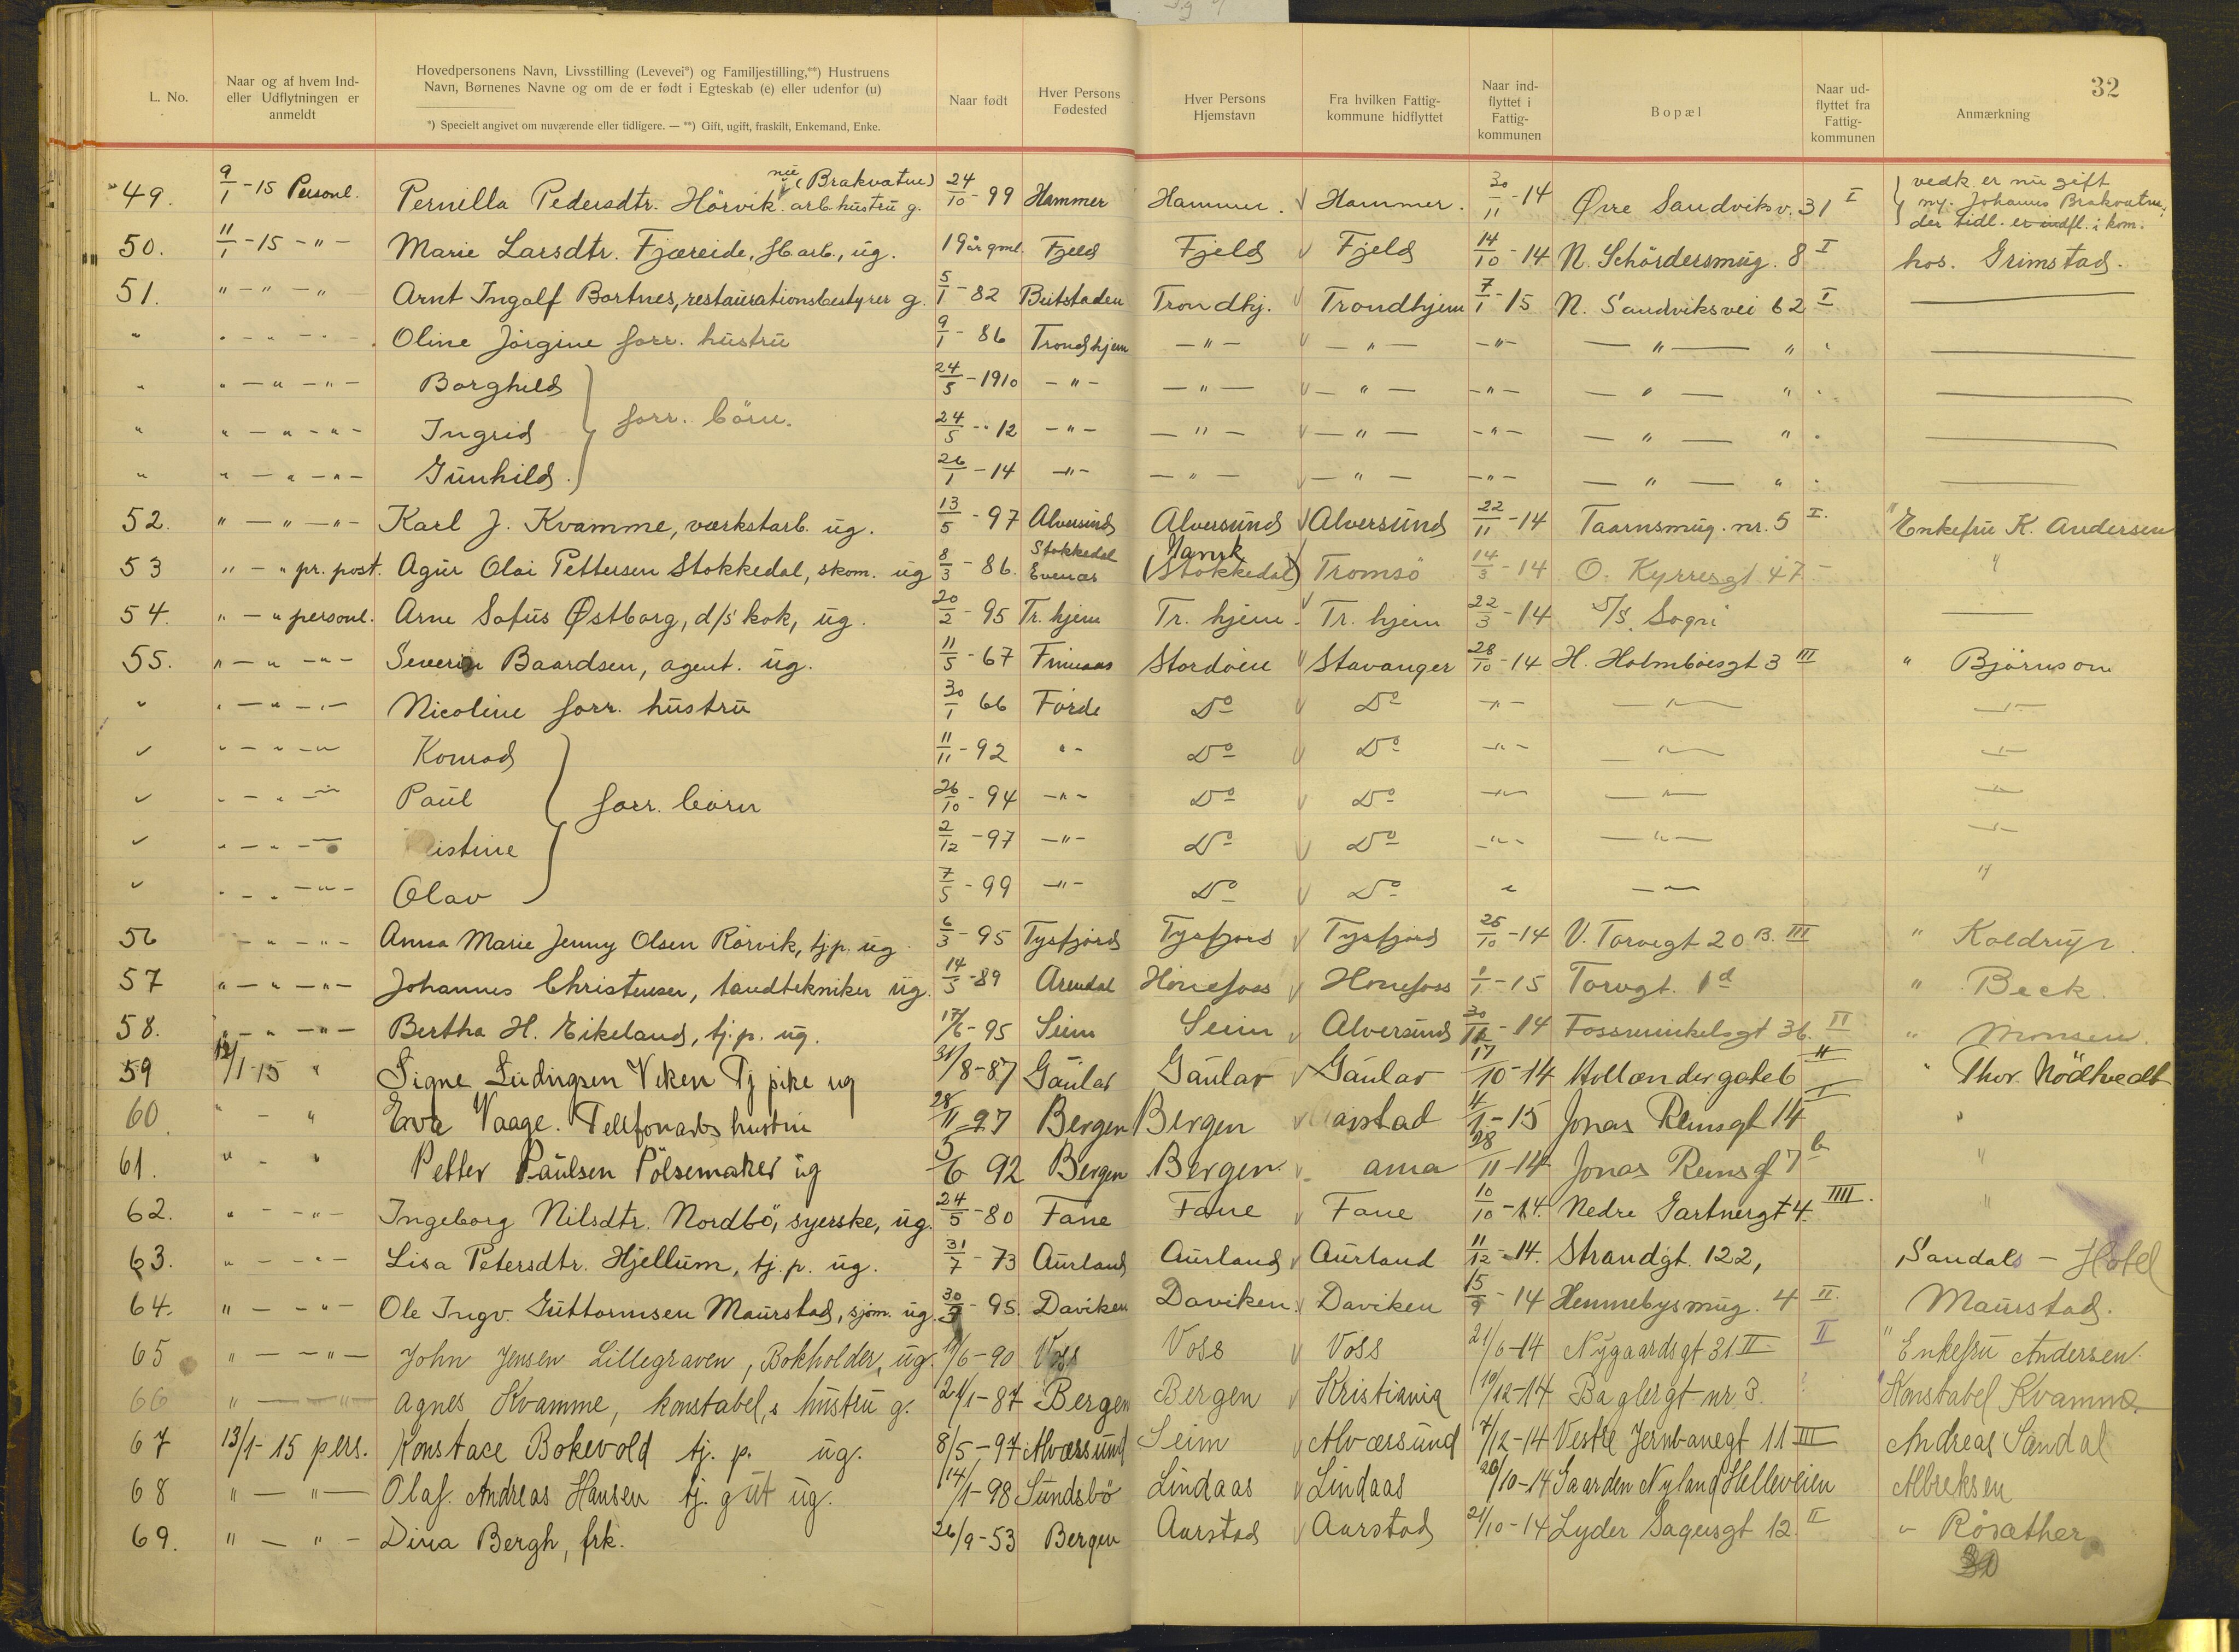 32
L. No. | Naar og af hvem Ind- eller Udflytningen er anmeldt | Hovedpersonens Navn, Livsstilling (Levevei*) og Familjestilling,**) Hustruens Navn, Børnenes Navne og om de er født i Egteskab (e) eller udenfor (u) | Naar født | Hver Persons Fødested | Hver Persons Hjemstavn | Fra hvilken Fattig- kommune hidflyttet | Naar ind- flyttet i Fattig- kommunen | Bopæl | Naar ud- flyttet fra Fattig- kommunen | Anmærkning
*) Specielt angivet om nuværende eller tidligere. — **) Gift, ugift, fraskilt, Enkemand, Enke.
49. 9/1-15 Personl. Pernilla Pedersdtr. Hörvik nu (Brakvatne) arb. hustru g. 24/10-99 Hammer Hammer. Hammer. 30/11-14 Øvre Sandviksv. 31 I vedk. er nu gift m. Johannes Brakvatne, der tidl. er indfl. i kom.
50. 11/1-15 -"- Marie Larsdtr. Fjæreide, fb. arb., ug. 19 år gml. Fjeld Fjeld Fjeld 14/10-14 N. Schördersmug. 8 I hos. Grimstad.
51. "-"-" Arnt Ingolf Bortnes, restaurationsbestyrer g. 5/1-82 Beitstaden Trondhj. Trondhjem 7/1-15 N. Sandviksvei 62 I —
" "-"-" Oline Jörgine forr. hustru 9/1-86 Trondhjem -"- -"- -"- -"- " —
" "-"-"- Borghild } forr. börn. 24/5-1910 -"- -"- -"- -"- -"- " —
" "-"-"- Ingrid 24/5-12 -"- -"- -"- -"- -"- " —
" "-"-"- Gunhild. 26/1-14 -"- -"- -"- -"- -"- " —
52. "-"-"- Karl J. Kvamme, værkstarb. ug. 13/5-97 Alversund Alversund Alversund 22/11-14 Taarnsmug. nr. 5 I. " Enkefru K. Andersen
53 "-" pr. post. Agur Olai Pettersen Stokkedal, skom. ug 8/3-86. Stokkedal Evenæs Norsk (Stokkedal) Tromsö 14/3-14 O. Kyrresgt 47 - "
54. "-" personl. Arne Sofus Østborg, d/s kok, ug. 20/2-95 Tr. hjem Tr. hjem. Tr. hjem 22/3-14 S/S. Sogn —
55. "-"-"- Severin Baardsen, agent. ug. 11/5-67 Finnaas Stordöen Stavanger 28/10-14 H. Holmboesgt 3 III " Björnson
" "-"-"- Nicoline forr. hustru 30/1 66 Förde Do Do -"- -"- -"-
" "-"-"- Konrad } forr. börn 11/11-92 "- Do Do -"- -"- -"-
" "-"-"- Paul 26/10-94 -"- Do Do -"- -"- -"-
" "-"-"- istine 2/12-97 -"- Do Do -"- -"- -"-
" "-"-"- Olav 7/5-99 -"- Do Do " -"- "
56 -"-"- Anna Marie Jenny Olsen Rörvik, tjp. ug. 6/3-95 Tysfjord Tysfjord Tysfjord 25/10-14 V. Torvegt 20 B. III " Koldrup.
57 "-"-"- Johannes Christensen, tandtekniker ug. 14/5-89 Arendal Hönefoss Hönefoss 1/1-15 Torvgt. 1 d " Beck.
58. "-"-"- Bertha H. Eikeland, tj. p. ug. 17/6-95 Seim Seim Alversund 30/11-14 Fosswinkelsgt 36. II " Monsen.
59 12/1-15 " Signe Ludvigsen Viken Tj pike ug 31/8-87 Gaular Gaular Gaular 17/10-14 Hollændergate 6 II " Thor. Nödtvedt
60. "-" Eva Vaage. Telefonarb hustru 28/11-97 Bergen Bergen Aarstad 4/1-15 Jonas Reinsgt 14 I "
61. "-" Petter Paulsen Pölsemaker ug 5/6 92 Bergen Bergen. ama 28/11-14 Jonas Reinsg 7 b "
62. "--"- Ingeborg Nilsdtr. Nordbö, syerske, ug. 24/5-80 Fane Fane Fane 10/10-14. Nedre Gartnergt 4. IIII. "
63. "--"- Lisa Petersdtr. Hjellum, tj. p. ug. 31/7-73 Aurland Aurland Aurland 11/12-14. Strandgt. 122, Sandals - Hotel
64. "--"- Ole Ingv. Guttormsen Maurstad, sjöm. ug. 30/9-95. Daviken Daviken. Daviken 15/9-14 Hennebysmug. 4 II. Maurstad.
65 "--"- John Jensen Lillegraven, Bokholder, ug. 11/6-90 Voss Voss Voss 21/6-14 Nygaardsgt 31 II II " Enkefru Andersen
66 "-"- Agnes Kvamme, konstabel,s hustru g. 21/1-87 Bergen Bergen Kristiania 10/12-14 Baglergt nr 3. Konstabel Kvamme
67 13/1-15 pers. Konstace Bokevold tj. p. ug. 8/5-97 Alværsund Seim Alværsund 7/12-14 Vestre Jernbanegt 11 III Andreas Sandal
68 "-"- Olaf. Andreas Hansen tj. gut ug. 14/1-98 Sundsbö Lindaas Lindaas 20/10-14 Gaarden Nyland Helleveien Albreksen
69. "-"- Dina Bergh, frk. 26/9-53 Bergen Aarstad Aarstad 21/10-14 Lyder Sagensgt 12. II " Rösæther